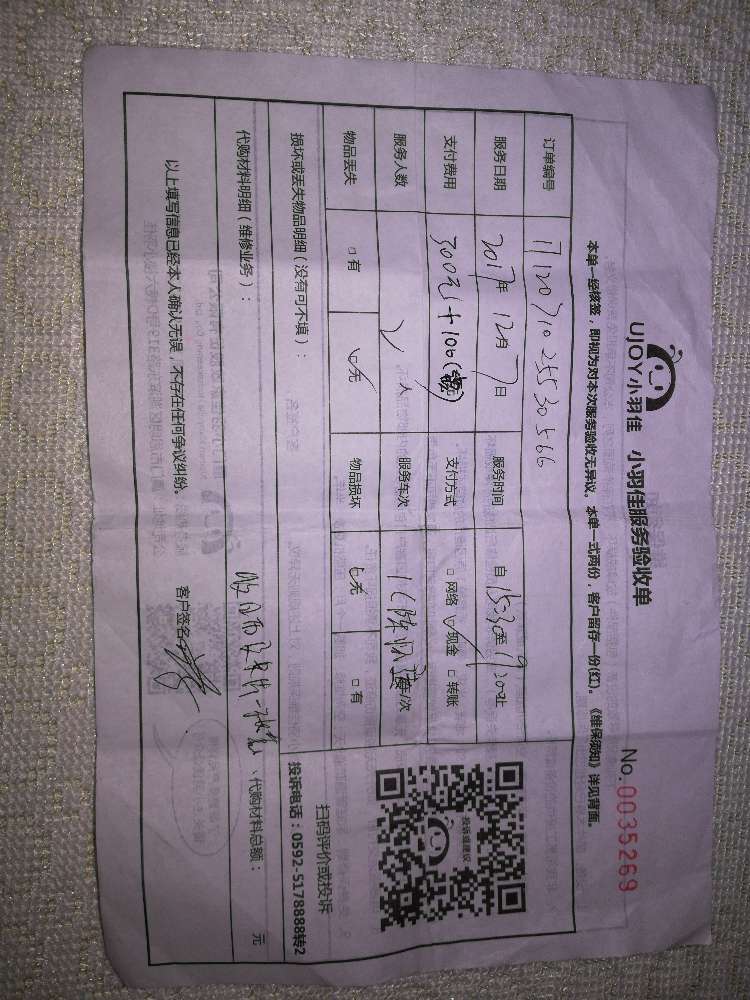 UJOY小羽佳 小羽佳服务验收单
No.0035269
本单一经核签，即视为对本次服务验收无异议。本单一式两份，客户留存一份(红)。《维保须知》详见背面。
订单编号 1712071025530566
服务日期 2017年 12月 7日 服务时间 自15:30至19:20止
支付费用 300元+100( 支付方式 □网络 ☑现金 □转账
服务人数 2人 服务车次 1( 车/次
物品丢失 □有 ☑无 物品损坏 ☑无 □有
损坏或丢失物品明细（没有可不填）：
代购材料明细（维修业务）：
、代购材料总额： 元
以上填写信息已经本人确认无误，不存在任何争议纠纷。 客户签名：
投诉或建议
扫码评价或投诉
投诉电话：0592-5178888转2